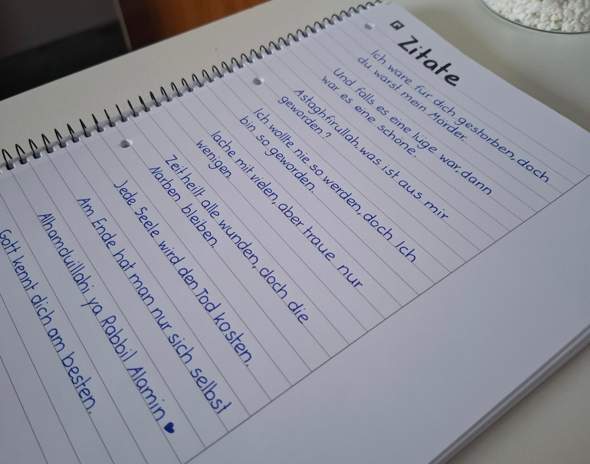 Zitate
Ich wäre für dich gestorben, doch
du warst mein Mörder.
Und falls es eine lüge war, dann
war es eine schöne.
Astaghfirullah, was ist aus mir
geworden?
Ich wollte nie so werden, doch Ich
bin so geworden.
lache mit vielen, aber traue nur
wenigen.
Zeit heilt alle wunden, doch die
Narben bleiben.
Jede Seele wird den Tod kosten.
Am Ende hat man nur sich selbst
Alhamduillahi ya Rabbil Alamin
Gott kennt dich am besten.